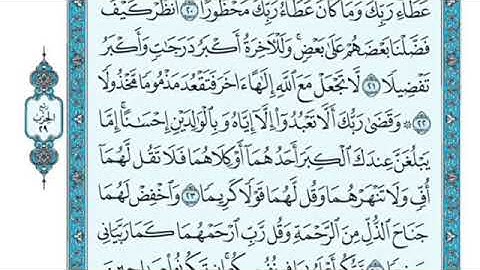 عَطَآءِ رَبِّكَ وَمَا كَانَ عَطَآءُ رَبِّكَ مَحْظُورًا ٢٠ ٱنظُرْ كَيْفَ
فَضَّلْنَا بَعْضَهُمْ عَلَىٰ بَعْضٍ وَلَلْءَاخِرَةُ أَكْبَرُ دَرَجَٰتٍ وَأَكْبَرُ
تَفْضِيلًا ٢١ لَّا تَجْعَلْ مَعَ ٱللَّهِ إِلَٰهًا ءَاخَرَ فَتَقْعُدَ مَذْمُومًا مَّخْذُولًا
٢٢ ۞ وَقَضَىٰ رَبُّكَ أَلَّا تَعْبُدُوٓا۟ إِلَّآ إِيَّاهُ وَبِٱلْوَٰلِدَيْنِ إِحْسَٰنًا إِمَّا
يَبْلُغَنَّ عِندَكَ ٱلْكِبَرَ أَحَدُهُمَآ أَوْ كِلَاهُمَا فَلَا تَقُل لَّهُمَآ
أُفٍّ وَلَا تَنْهَرْهُمَا وَقُل لَّهُمَا قَوْلًا كَرِيمًا ٢٣ وَٱخْفِضْ لَهُمَا
جَنَاحَ ٱلذُّلِّ مِنَ ٱلرَّحْمَةِ وَقُل رَّبِّ ٱرْحَمْهُمَا كَمَا رَبَّيَانِى
ربع
الحزب
٢٩